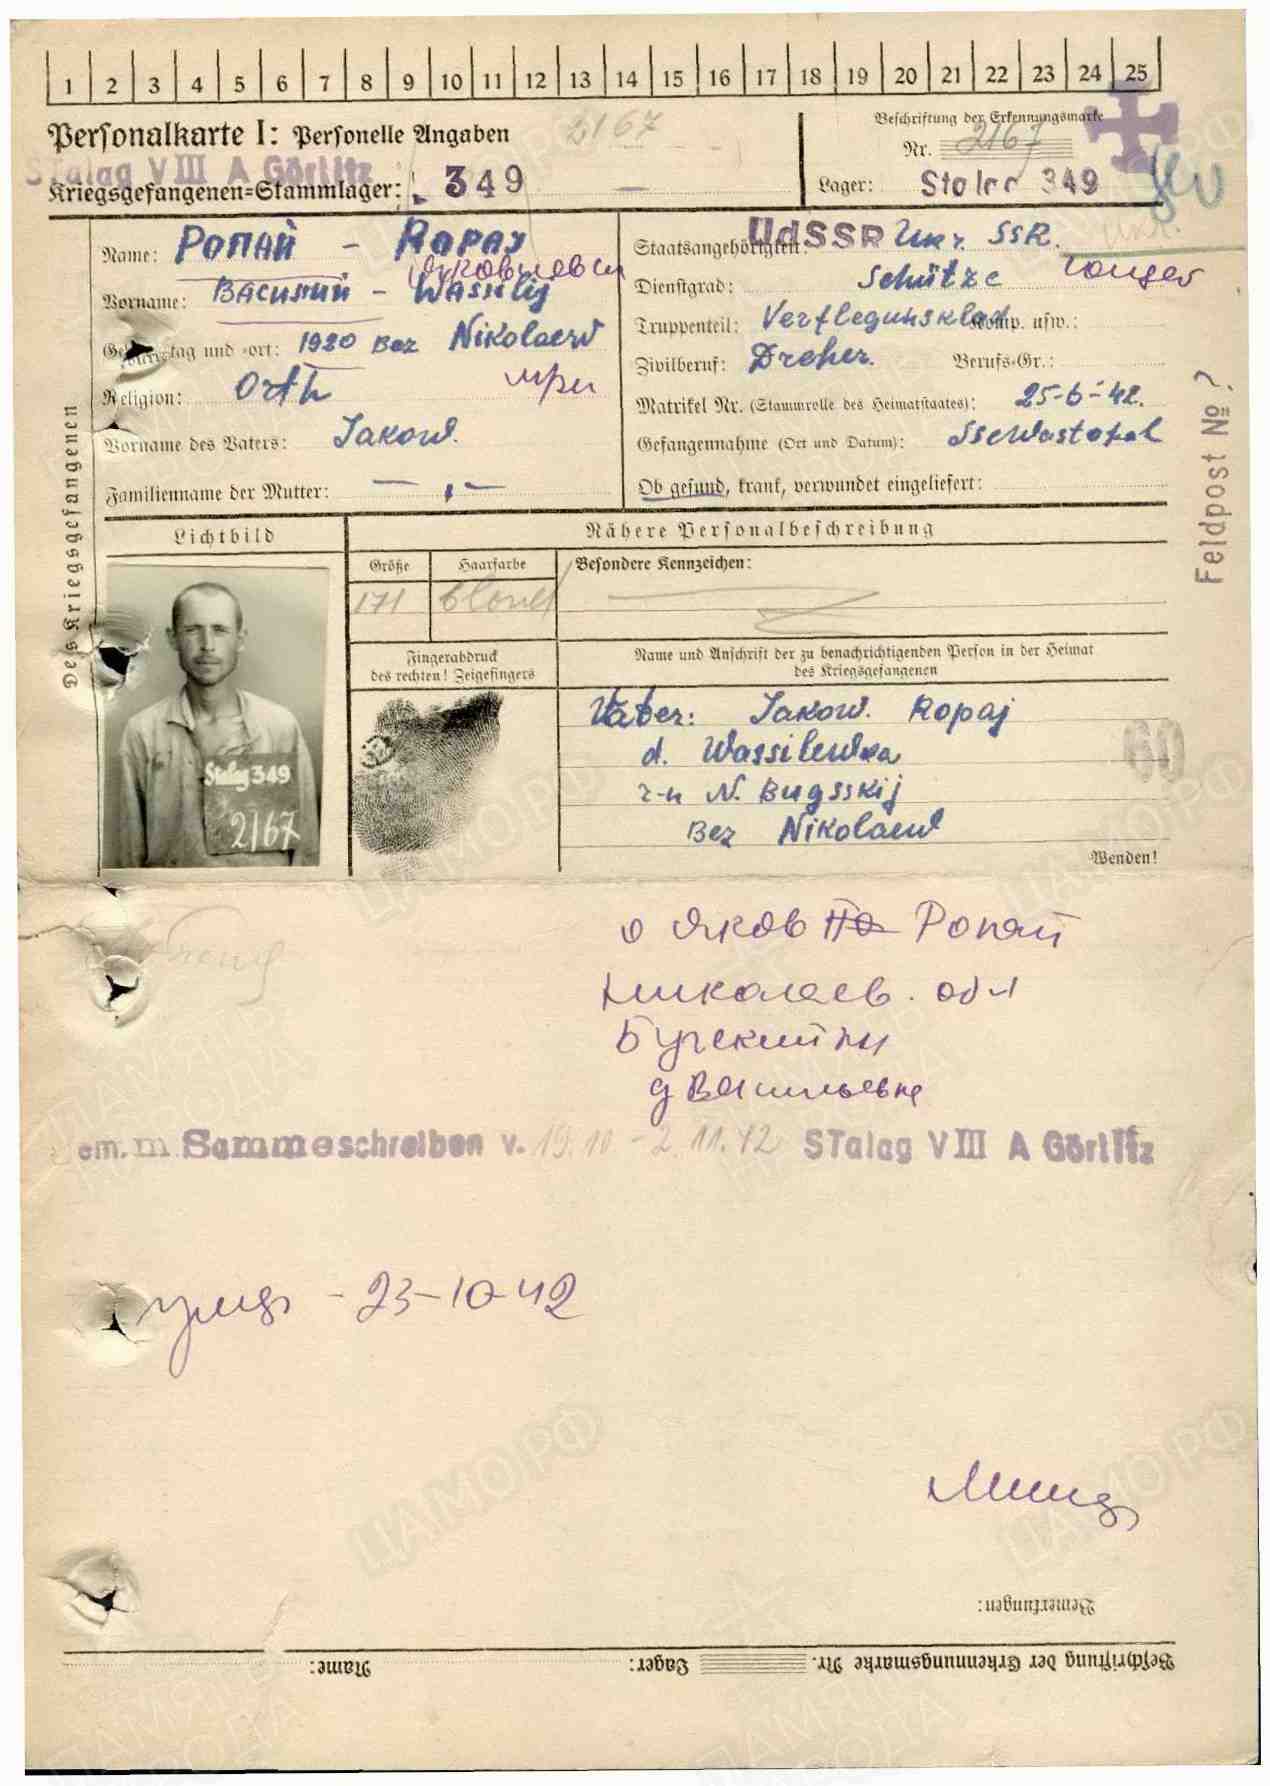 1 2 3 4 5 6 7 8 9 10 11 12 13 14 15 16 17 18 19 20 21 22 23 24 25
Personalkarte I: Personelle Angaben
2167
Beschriftung der Erkennungsmarke
Nr. 2167
Stalag VIII A Görlitz
Kriegsgefangenen=Stammlager: 349
Lager: Stalag 349
Des Kriegsgefangenen
Name: Ропай - Ropaj
Яковлевич
Vorname: Василий - Wassilij
Geburtstag und =ort: 1920 Bez Nikolaew
Religion: Orth
укр
Vorname des Vaters: Jakow.
Familienname der Mutter: - „ -
Staatsangehörigkeit: UdSSR Ukr. SSR.
Dienstgrad: Schütze
Truppenteil: Verflegunsklad Komp. usw.:
Zivilberuf: Dreher. Berufs=Gr.:
Matrikel Nr. (Stammrolle des Heimatstaates): 25-6-42.
Gefangennahme (Ort und Datum): Ssewastopol
Ob gesund, krank, verwundet eingeliefert:
Feldpost No?
Lichtbild
Nähere Personalbeschreibung
Größe
Haarfarbe
Besondere Kennzeichen:
171
blond
Fingerabdruck
des rechten! Zeigefingers
Name und Anschrift der zu benachrichtigenden Person in der Heimat
des Kriegsgefangenen
Stalag 349
2167
Vater: Jakow. Ropaj
d. Wassilewka
r-n N. Bugsskij
Bez Nikolaew
60
Wenden!
о Яков Ропай
Николаев. обл
Бугский рн
д Васильевка
Gem. m. Sammeschreiben v. 19.10 - 2.11.42 STalag VIII A Görlitz
- 23-10-42
Bemerkungen:
Beschriftung der Erkennungsmarke Nr. Lager: Name:
ПАМЯТЬ НАРОДА
ЦАМО.РФ